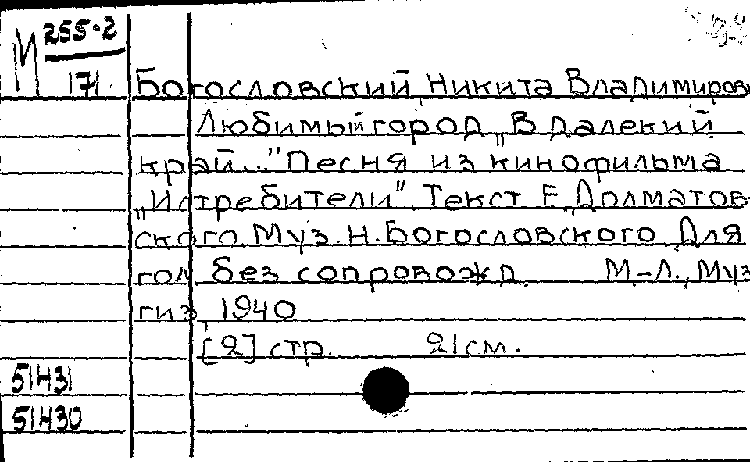 М 255-2
171
Богословский, Никита Владимиров
Любимый город „В далекий
край..." Песня из кинофильма
„Истребители". Текст Е. Долматов-
ского Муз. Н. Богословского Для
гол без сопровожд М.-Л., Муз
гиз, 1940
[2] стр. 21см.
51431
51430